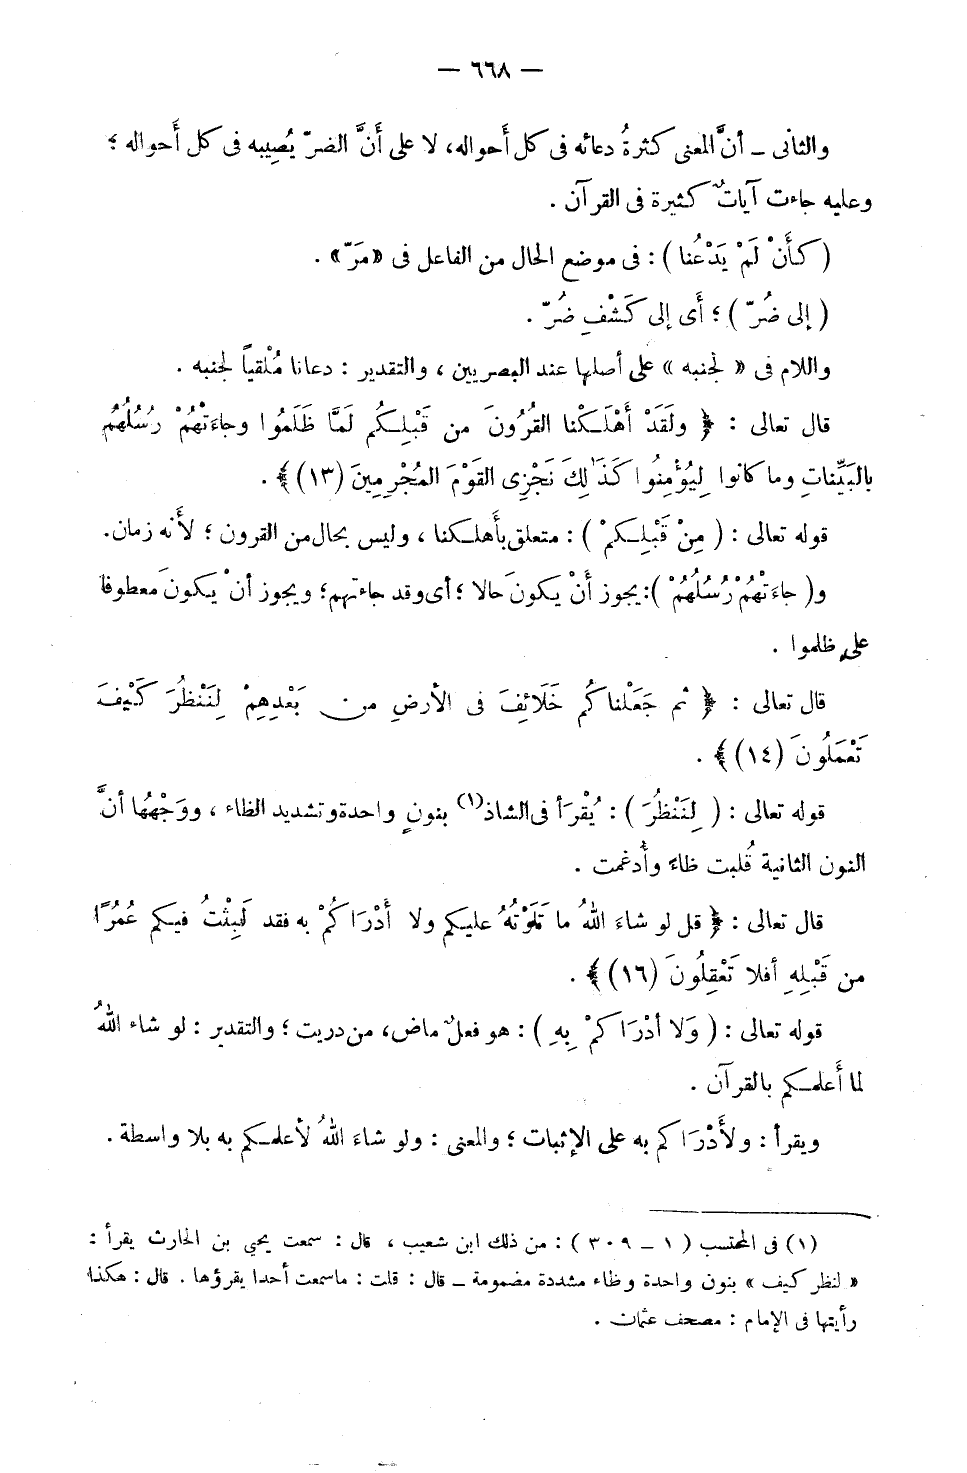 — ٦٦٨ —
والثانى ــ أنَّ المعنى كثرةُ دعائه فى كل أحواله، لا على أَنَّ الضرّ يُصِيبه فى كل أَحواله ؛
وعليه جاءت آياتٌ كثيرة فى القرآن .
( كَأَنْ لَمْ يَدْعُنا ) : فى موضع الحال من الفاعل فى «مَرّ» .
( إلى ضُرّ ) ؛ أَى إلى كَشْفِ ضُرّ .
واللام فى « لجنبه » على أصلها عند البصريين ، والتقدير : دعانا مُلْقياً لجنبه .
قال تعالى : ﴿ ولَقَدْ أَهْلَكْنا القُرُونَ من قَبْلِكُم لَمَّا ظَلَمُوا وجاءَتْهُمْ رُسُلُهُمْ
بالبَيِّناتِ وما كانوا لِيُؤْمِنُوا كَذَٰلِكَ نَجْزِى القَوْمَ المُجْرِمِينَ (١٣) ﴾ .
قوله تعالى : ( مِنْ قَبْلِكمْ ) : متعلق بأَهلكنا ، وليس بحال من القرون ؛ لأَنه زمان.
و( جاءَتْهُمْ رُسُلُهُمْ ): يجوز أَنْ يكونَ حالا ؛ أى وقد جاءتهم؛ ويجوز أنْ يكونَ معطوفا
على ظلموا .
قال تعالى : ﴿ ثم جَعَلْناكُم خَلَائِفَ فى الأرضِ من بَعْدِهِمْ لِنَنْظُرَ كَيْفَ
تَعْمَلُونَ (١٤) ﴾ .
قوله تعالى : ( لِنَنْظُرَ ) : يُقْرَأ فى الشاذ(١) بنونٍ واحدة وتشديد الظاء ، ووَجْهُها أنَّ
النون الثانية قُلبت ظاءً وأُدغمت .
قال تعالى : ﴿ قل لو شاءَ اللهُ ما تَلَوْتُهُ عليكم ولا أَدْرَاكُمْ به فقد لَبِثْتُ فيكم عُمُرًا
من قَبْلِهِ أفلا تَعْقِلُونَ (١٦) ﴾ .
قوله تعالى : ( وَلا أدْرَاكمْ بِهِ ) : هو فعلٌ ماض، من دريت ؛ والتقدير : لو شاء اللهُ
لما أَعلمكم بالقرآن .
ويقرأ : ولأَدْرَاكم به على الإثبات ؛ والمعنى : ولو شاءَ اللهُ لأعلمكم به بلا واسطة .
(١) فى المحتسب ( ١ ــ ٣٠٩ ) : من ذلك ابن شعيب ، قال : سمعت يحيى بن الحارث يقرأ :
« لنظر كيف » بنون واحدة وظاء مشددة مضمومة ــ قال : قلت : ماسمعت أحدا يقرؤها . قال : هكذا
رأيتها فى الإمام : مصحف عثمان .